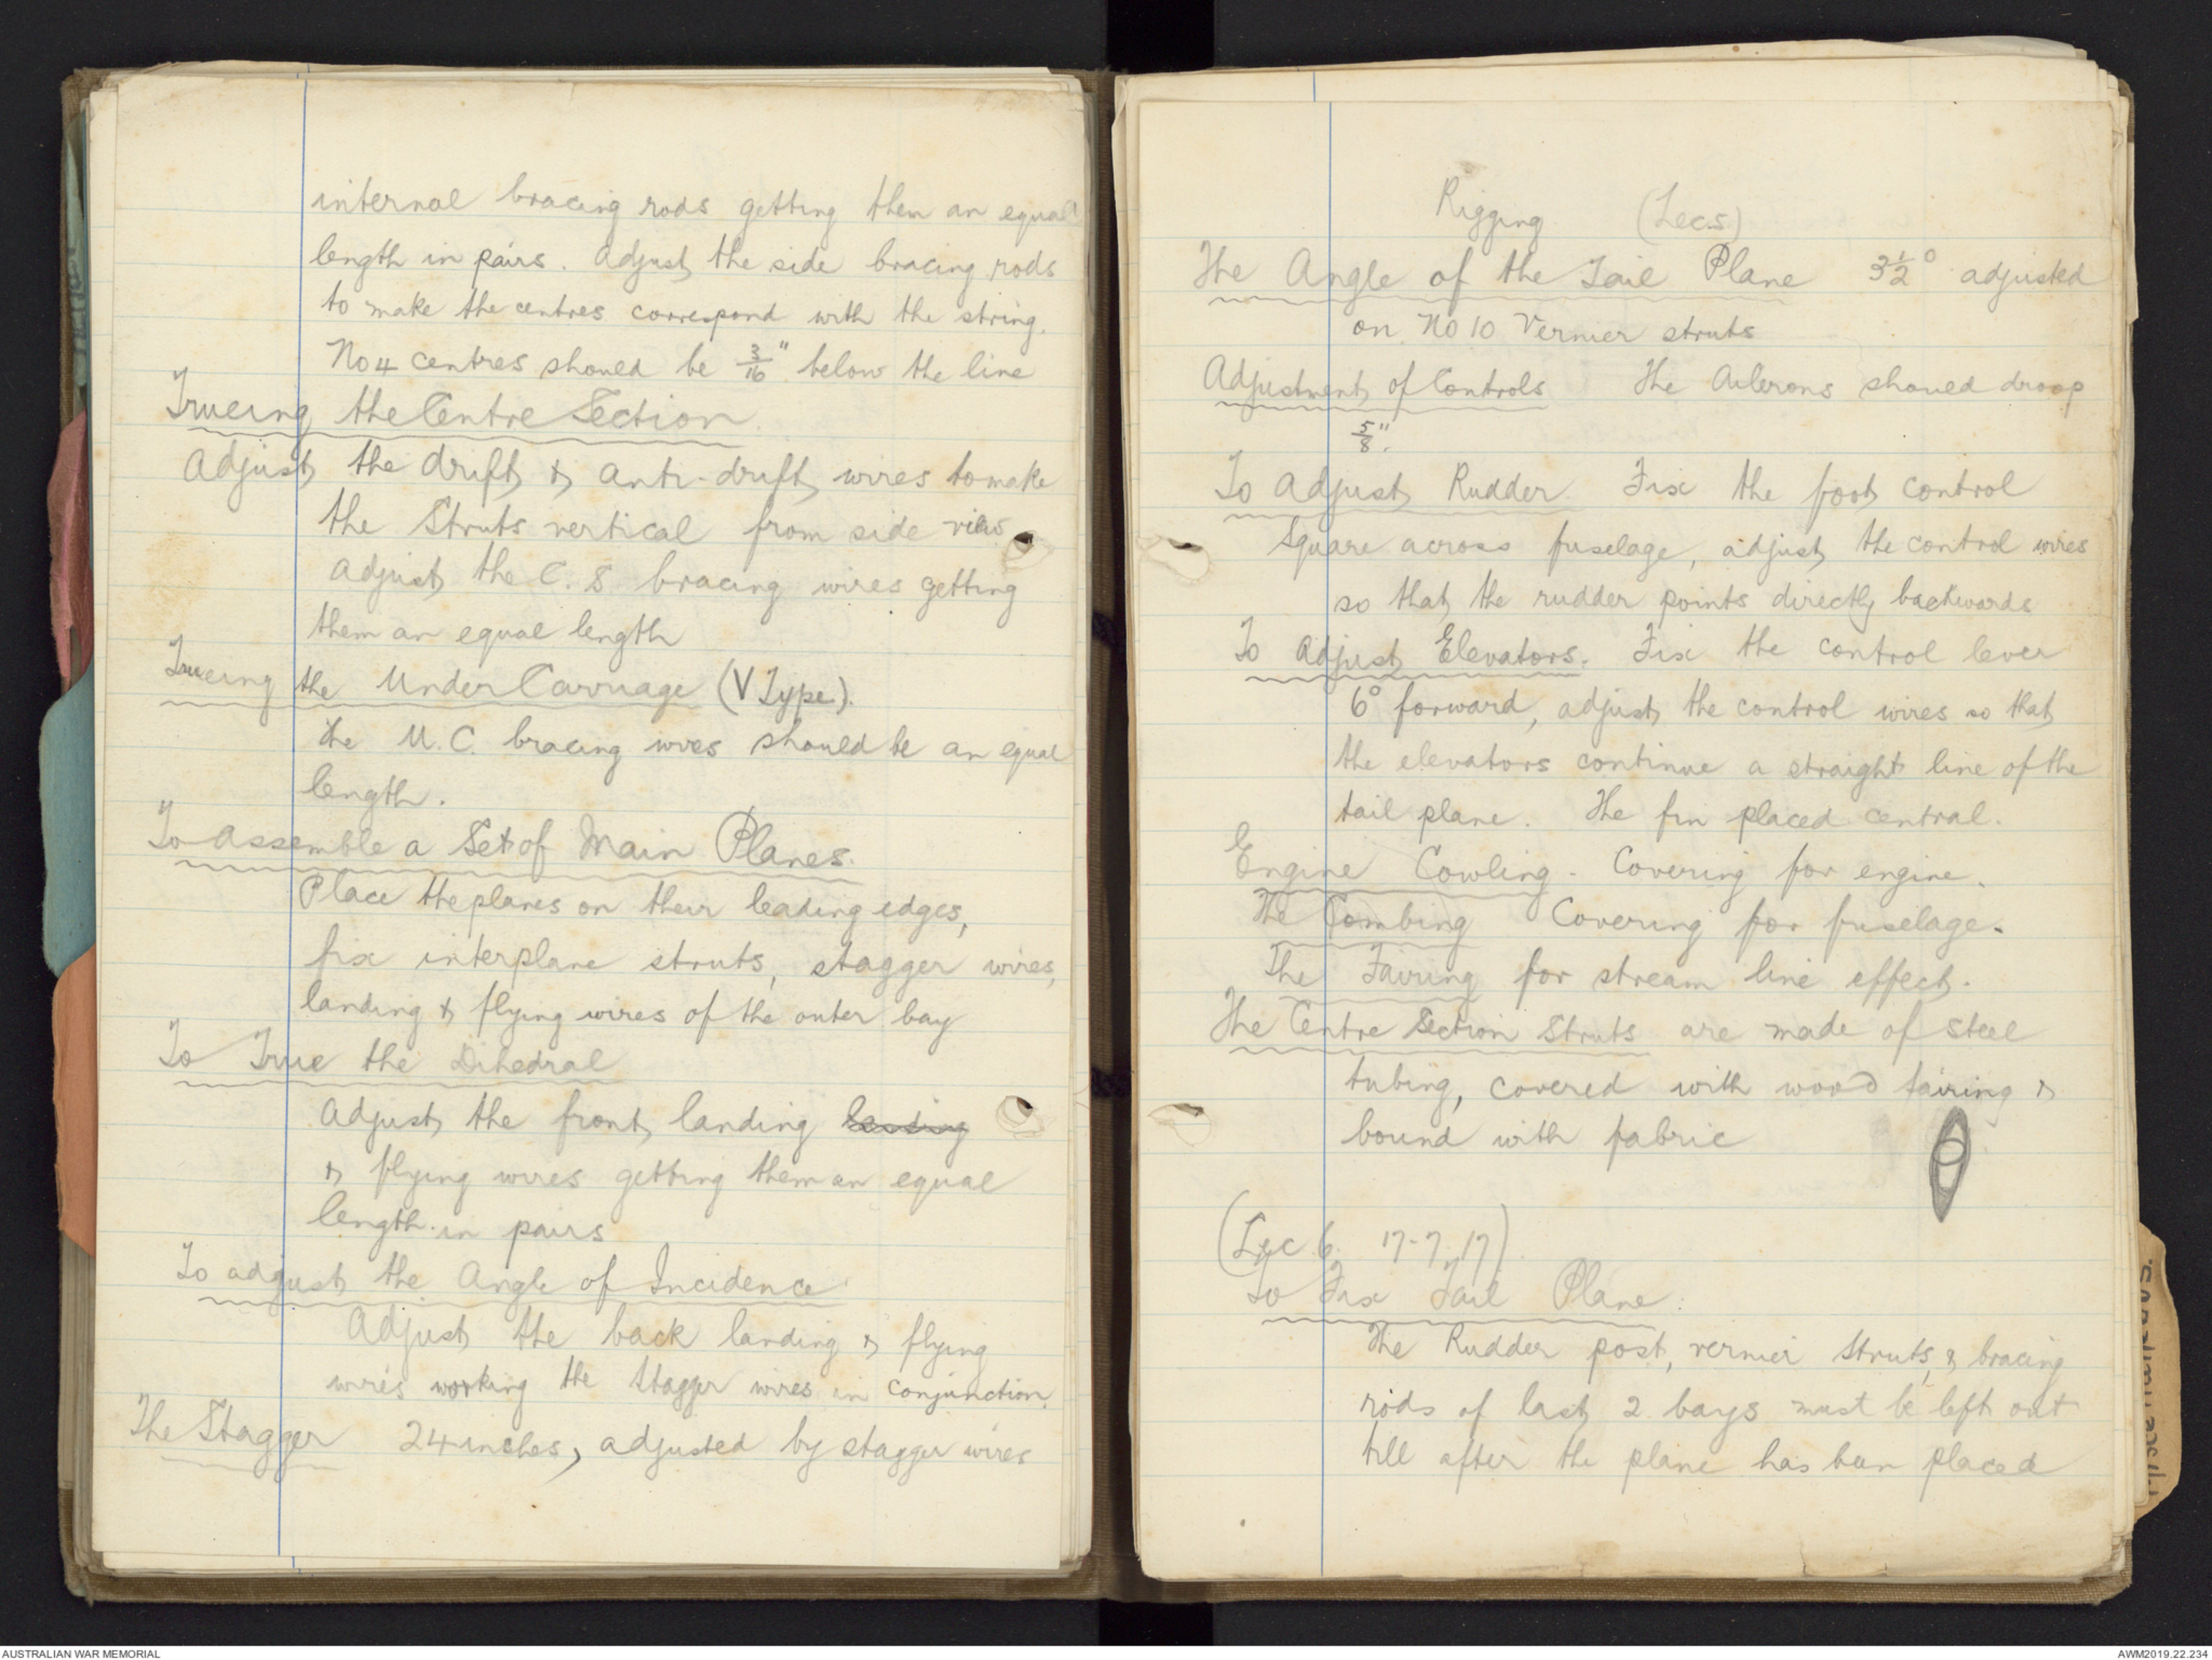 internal bracing rods getting them an equal
length in pairs. Adjust the side bracing rods
to make the centres correspond with the string.
No 4 centres should be 3/16" below the line
Trueing the Centre Section.
Adjust the drift & anti-drift wires to make
the Struts vertical from side view
Adjust the C.S bracing wires getting
them an equal length
Trueing the Under Carriage (V Type).
The U.C. bracing wires should be an equal
length.
To assemble a Set of Main Planes.
Place the planes on their leading edges,
fix interplane struts, stagger wires,
landing & flying wires of the outer bay
To True the Dihedral
Adjust the front landing landing
& flying wires getting them an equal
length in pairs
To adjust the Angle of Incidence
Adjust the back landing & flying
wires working the stagger wires in conjunction.
The Stagger 24 inches, adjusted by stagger wires
Rigging (Lec 5)
The Angle of the Tail Plane 3½° adjusted
on No 10 Vernier struts
Adjustment of Controls The Ailerons should droop
5/8".
To Adjust Rudder. Fix the foot control
Square across fuselage, adjust the control wires
so that the rudder points directly backwards
To Adjust Elevators. Fix the control lever
6° forward, adjust the control wires so that
the elevators continue a straight line of the
tail plane. The fin placed central.
Engine Cowling - Covering for engine.
The Combing Covering for fuselage.
The Fairing for stream line effect.
The Centre Section Struts are made of steel
tubing, covered with wood fairing &
bound with fabric
(Lec 6. 17-7-17)
To Fix Tail Plane.
The Rudder post, vernier struts, & bracing
rods of last 2 bays must be left out
till after the plane has been placed
AUSTRALIAN WAR MEMORIAL
AWM2019.22.234